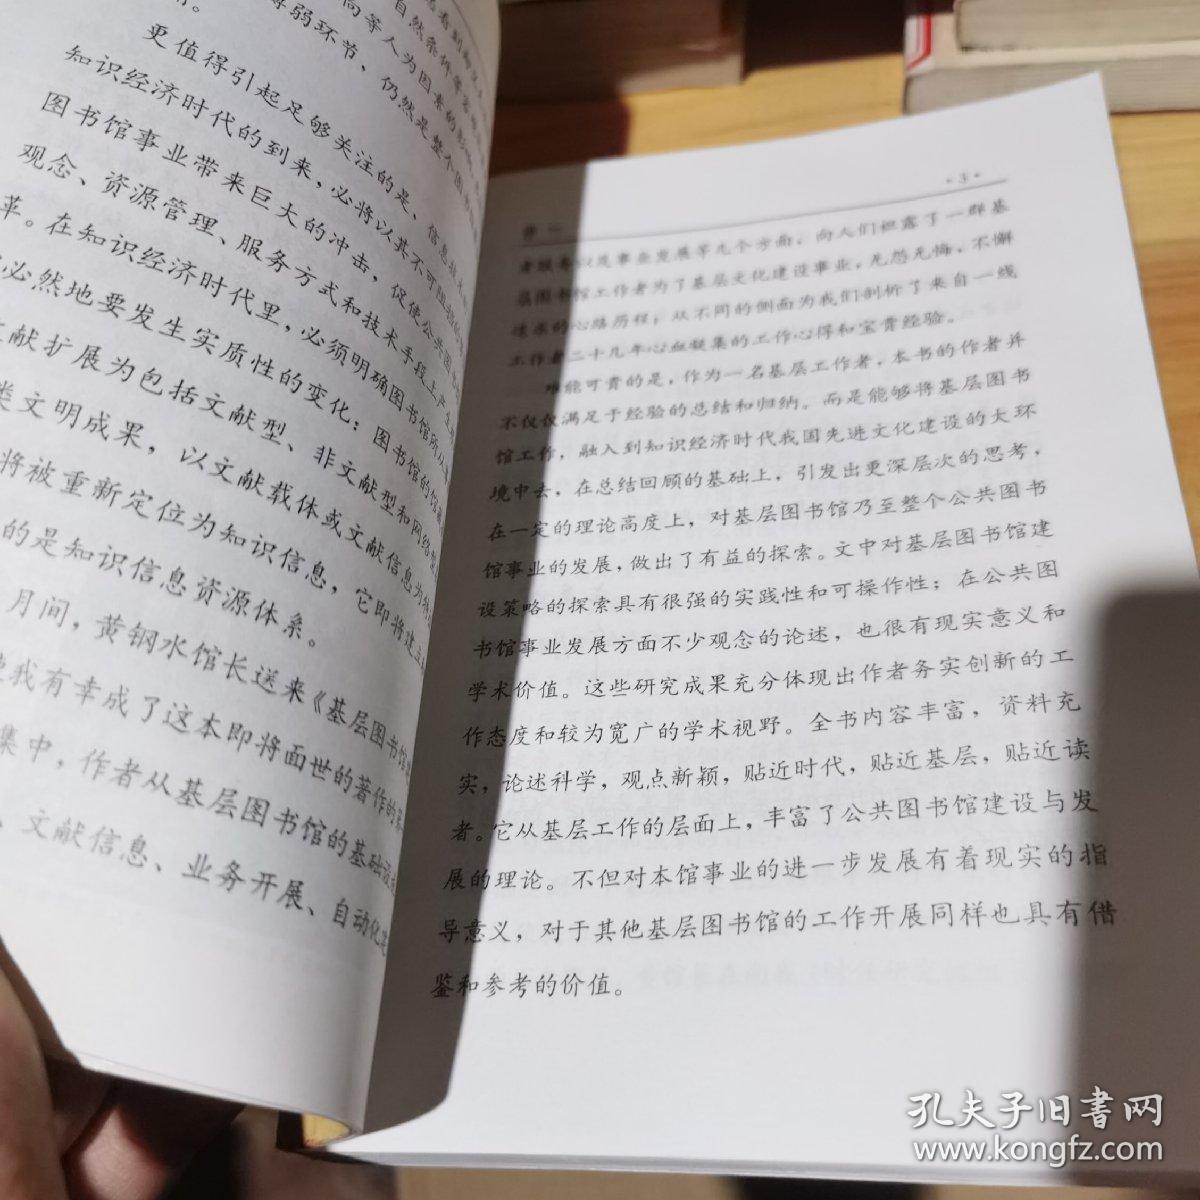 更值得引起足够关注的是、信息技
知识经济时代的到来，必将以其不可阻挡的
图书馆事业带来巨大的冲击，促使公共图
观念、资源管理、服务方式和技术手段上产生
革。在知识经济时代里，必须明确图书馆所
必然地要发生实质性的变化：图书馆的馆藏
献扩展为包括文献型、非文献型和网络
类文明成果，以文献载体或文献信息为
将被重新定位为知识信息，它即将建立
的是知识信息资源体系。
月间，黄钢水馆长送来《基层图书馆
使我有幸成了这本即将面世的著作的
集中，作者从基层图书馆的基础设
、文献信息、业务开展、自动化
·3·
序一
者服务以及事业发展等几个方面，向人们袒露了一群基
层图书馆工作者为了基层文化建设事业，无怨无悔、不懈
追求的心路历程；从不同的侧面为我们剖析了来自一线
工作者二十几年心血凝集的工作心得和宝贵经验。
难能可贵的是，作为一名基层工作者，本书的作者并
不仅仅满足于经验的总结和归纳。而是能够将基层图书
馆工作，融入到知识经济时代我国先进文化建设的大环
境中去，在总结回顾的基础上，引发出更深层次的思考，
在一定的理论高度上，对基层图书馆乃至整个公共图书
馆事业的发展，做出了有益的探索。文中对基层图书馆建
设策略的探索具有很强的实践性和可操作性；在公共图
书馆事业发展方面不少观念的论述，也很有现实意义和
学术价值。这些研究成果充分体现出作者务实创新的工
作态度和较为宽广的学术视野。全书内容丰富，资料充
实，论述科学，观点新颖，贴近时代，贴近基层，贴近读
者。它从基层工作的层面上，丰富了公共图书馆建设与发
展的理论。不但对本馆事业的进一步发展有着现实的指
导意义，对于其他基层图书馆的工作开展同样也具有借
鉴和参考的价值。
孔夫子旧书网
www.kongfz.com